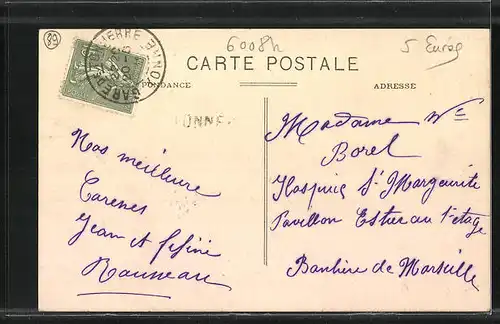 89
6008h
5 Euró
CARTE POSTALE
PONDANCE
ADRESSE
ONNE
Nos meilleure
Careses
Jean et fifine
Rousseau
Madame Vve
Borel
Hospice St Marguerite
Pavillon Est au 1er étage
Banliere de Marseille